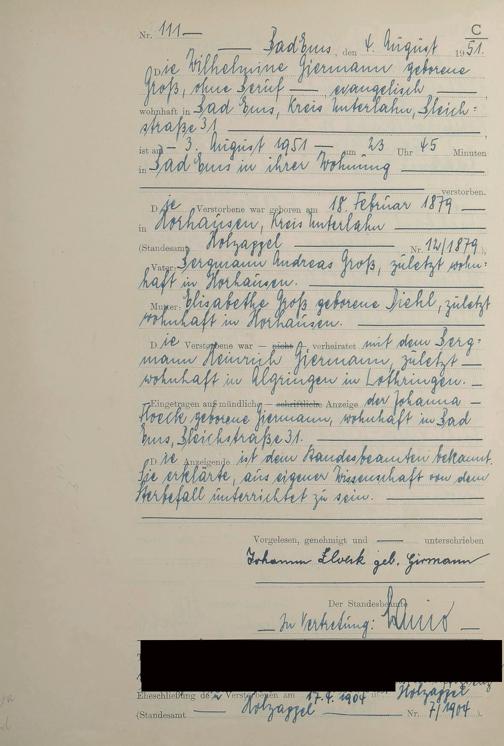 C
Nr. 111
Bad Ems, den 4. August 1951.
Die Wilhelmine Giermann geborene
Groß, ohne Beruf, evangelisch
wohnhaft in Bad Ems, Kreis Unterlahn, Bleich=
straße 31
ist am 3. August 1951 um 23 Uhr 45 Minuten
in Bad Ems in ihrer Wohnung
verstorben.
Die Verstorbene war geboren am 18. Februar 1879
in Horhausen, Kreis Unterlahn
(Standesamt Holzappel Nr. 12/1879),
Vater: Bergmann Andreas Groß, zuletzt wohn=
haft in Horhausen.
Mutter: Elisabethe Groß geborene Diehl, zuletzt
wohnhaft in Horhausen.
Die Verstorbene war – nicht – verheiratet mit dem Berg=
mann Heinrich Giermann, zuletzt
wohnhaft in Algringen in Lothringen.
Eingetragen auf mündliche – schriftliche Anzeige der Johanna
geborene Giermann, wohnhaft in Bad
Ems, Bleichstraße 31.
Die Anzeigende ist dem Standesbeamten bekannt.
Sie erklärte, aus eigener Wissenschaft von dem
Sterbefall unterrichtet zu sein.
Vorgelesen, genehmigt und unterschrieben
geb.
Der Standesbeamte
In Vertretung:
Eheschließung der Verstorbenen am 17.4.1904 Holzappel
(Standesamt Holzappel Nr. 7/1904)